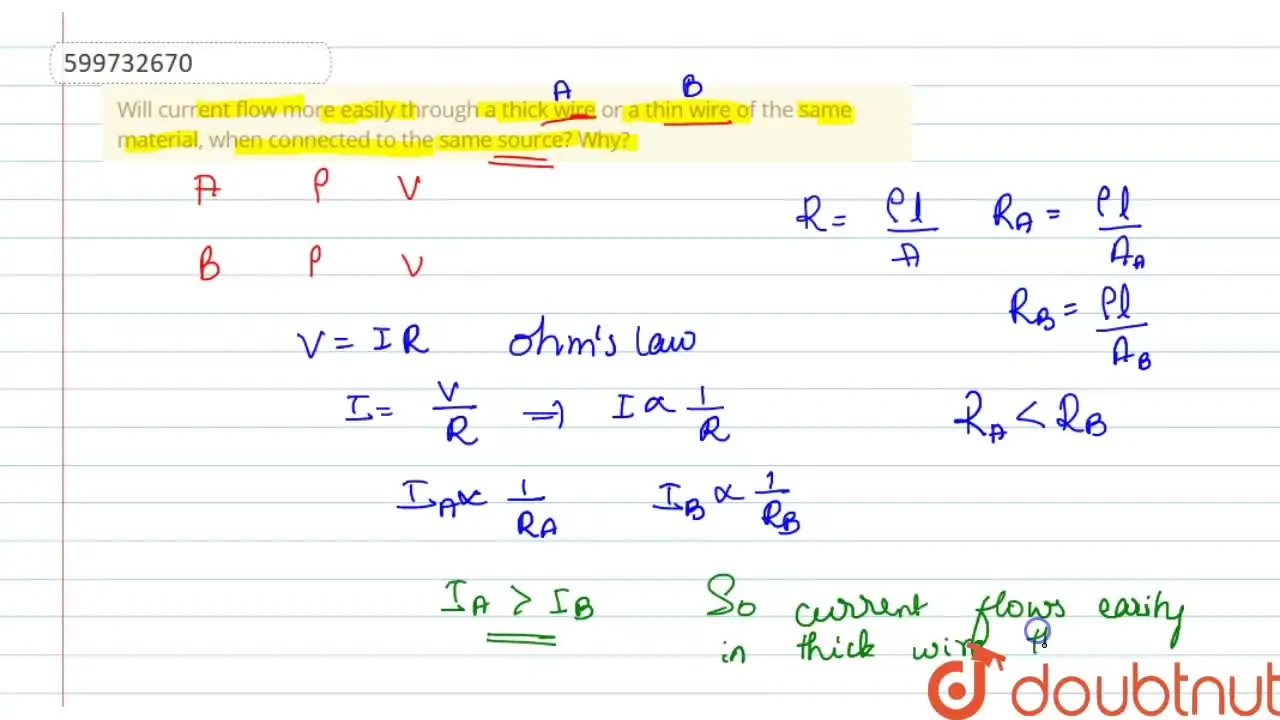 599732670
A B
Will current flow more easily through a thick wire or a thin wire of the same
material, when connected to the same source? Why?
A ρ V
B ρ V
R = ρl/A R_A = ρl/A_A
R_B = ρl/A_B
V = IR ohm's law
I = V/R ⇒ I ∝ 1/R
R_A < R_B
I_A ∝ 1/R_A I_B ∝ 1/R_B
I_A > I_B So current flows easity
in thick
doubtnut